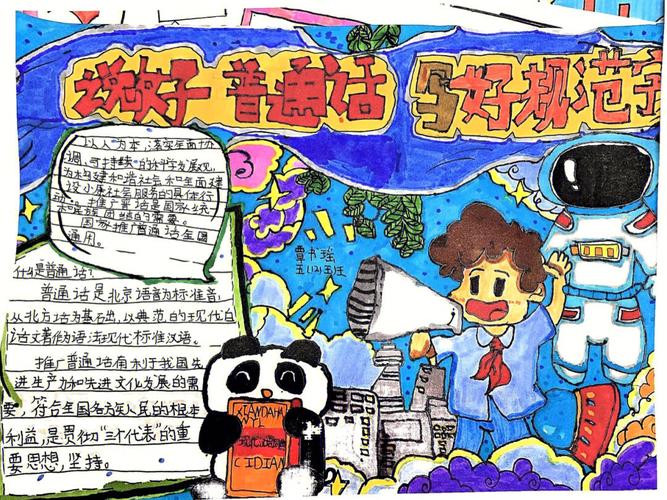 说好 普通话 写好规范字
以人为本,落实全面协
调、可持续的科学发展观,
为构建和谐社会和全面建
设小康社会服务的具体行
动。推广普通话是国家统
一和民族团结的需要。
国家推广普通话全国
通用。
什么是普通话?
普通话是北京语言为标准音,
从北方话为基出,以典范的现代白
话文著作为语法现代标准汉语。
推广普通话有利于我国先
进生产力和先进文化发展的需
要,符合全国各方矣人民的根本
利益,是贯彻“三个代表”的重
要思想,坚持。
覃书瑶
五(12)班
XIANDAHA
NYU
现代汉语词典
CIDIAN